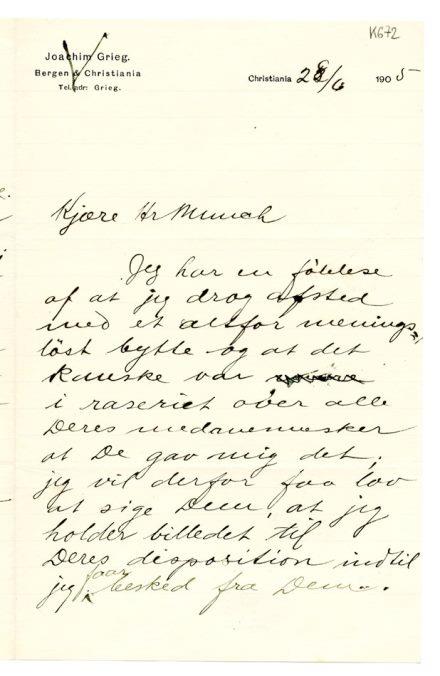 K672
Joachim Grieg.
Bergen & Christiania
Tel. adr: Grieg.
Christiania 28/6 1905
Kjære Hr Munch
Jeg har en følelse
af at jeg drog afsted
med et altfor menings-
löst bytte og at det
kanske var
i raseriet over alle
Deres medmennesker
at De gav mig det,
jeg vil derfor faa lov
at sige Dem, at jeg
holder billedet til
Deres disposition indtil
jeg faar besked fra Dem.